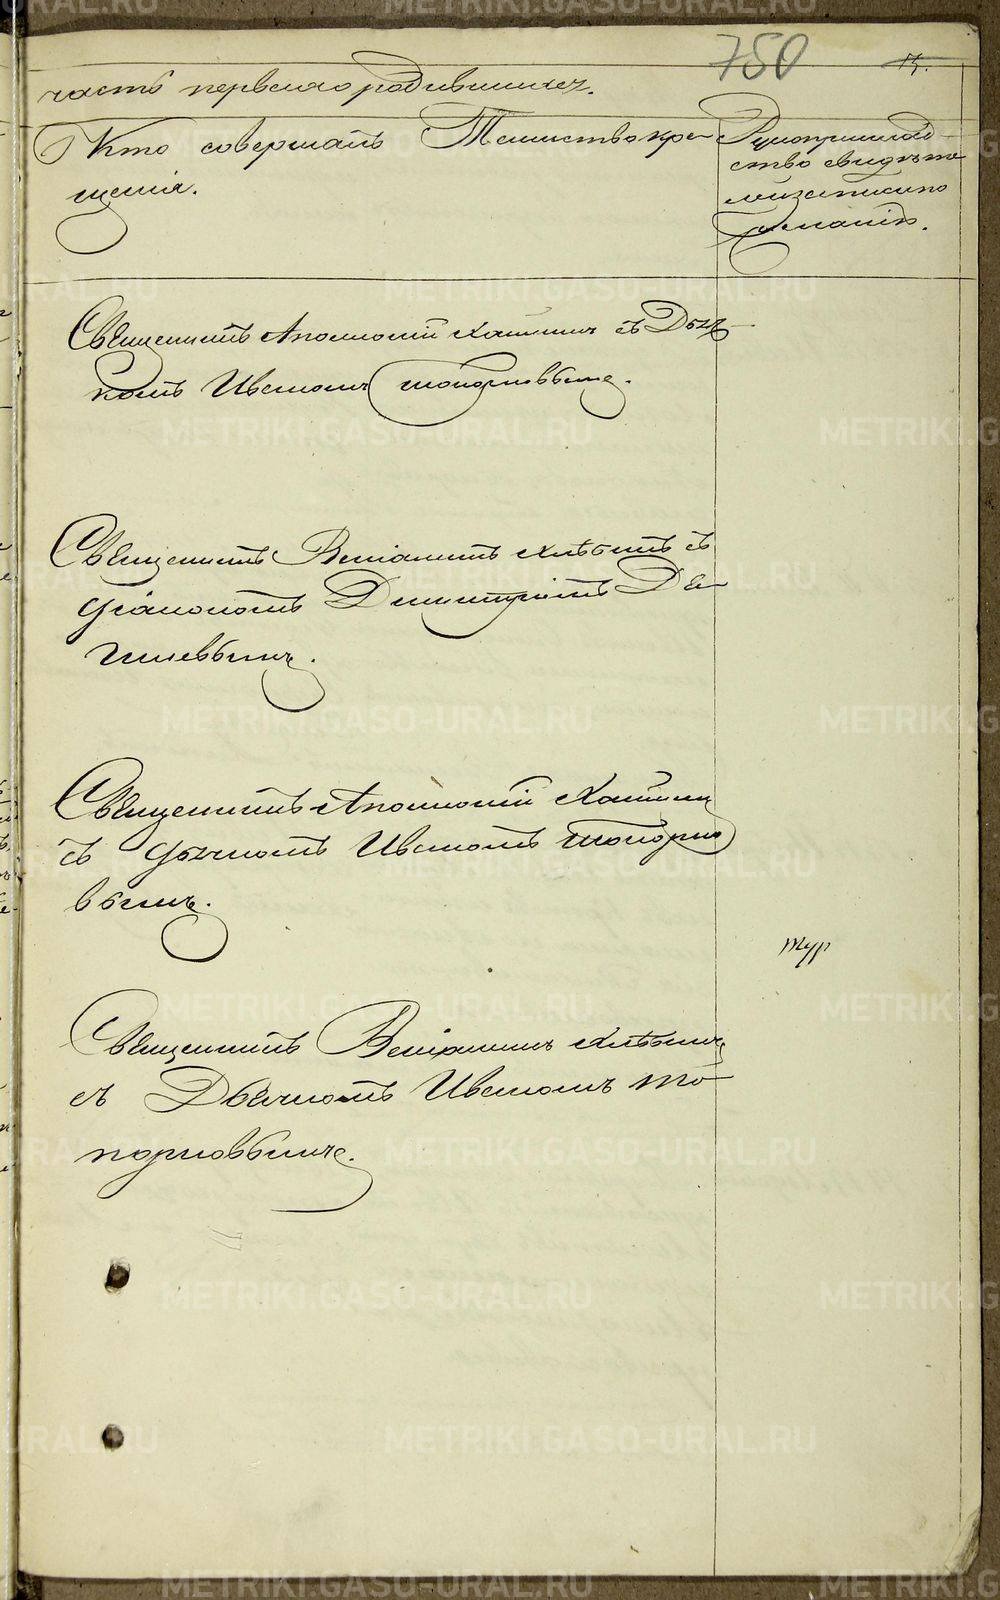 750
часть первая о родившихся.
Кто совершалъ Таинство кре-
щенія.
Рукоприклад-
ство свидѣте
лей записи по
желанію.
Священникъ Аполлоній съ Дьяч-
комъ Иваномъ Топорковымъ.
Священникъ Веніаминъ Хлѣбинъ съ
діакономъ Димитріемъ
Священникъ Аполлоній
съ дьячкомъ Иваномъ Топорко
вымъ.
Священникъ Веніаминъ Хлѣбинъ
съ Дьячкомъ Иваномъ То-
порковымъ.
METRIKI.GASO-URAL.RU